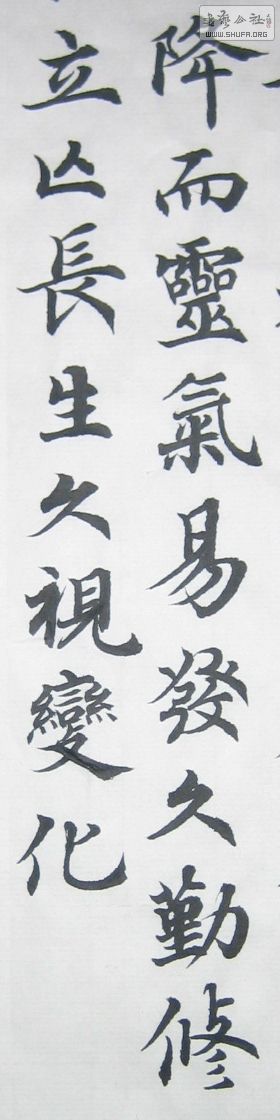 书藝公社
WWW.SHUFA.ORG
降而靈氣易發久勤修
立亾長生久視變化